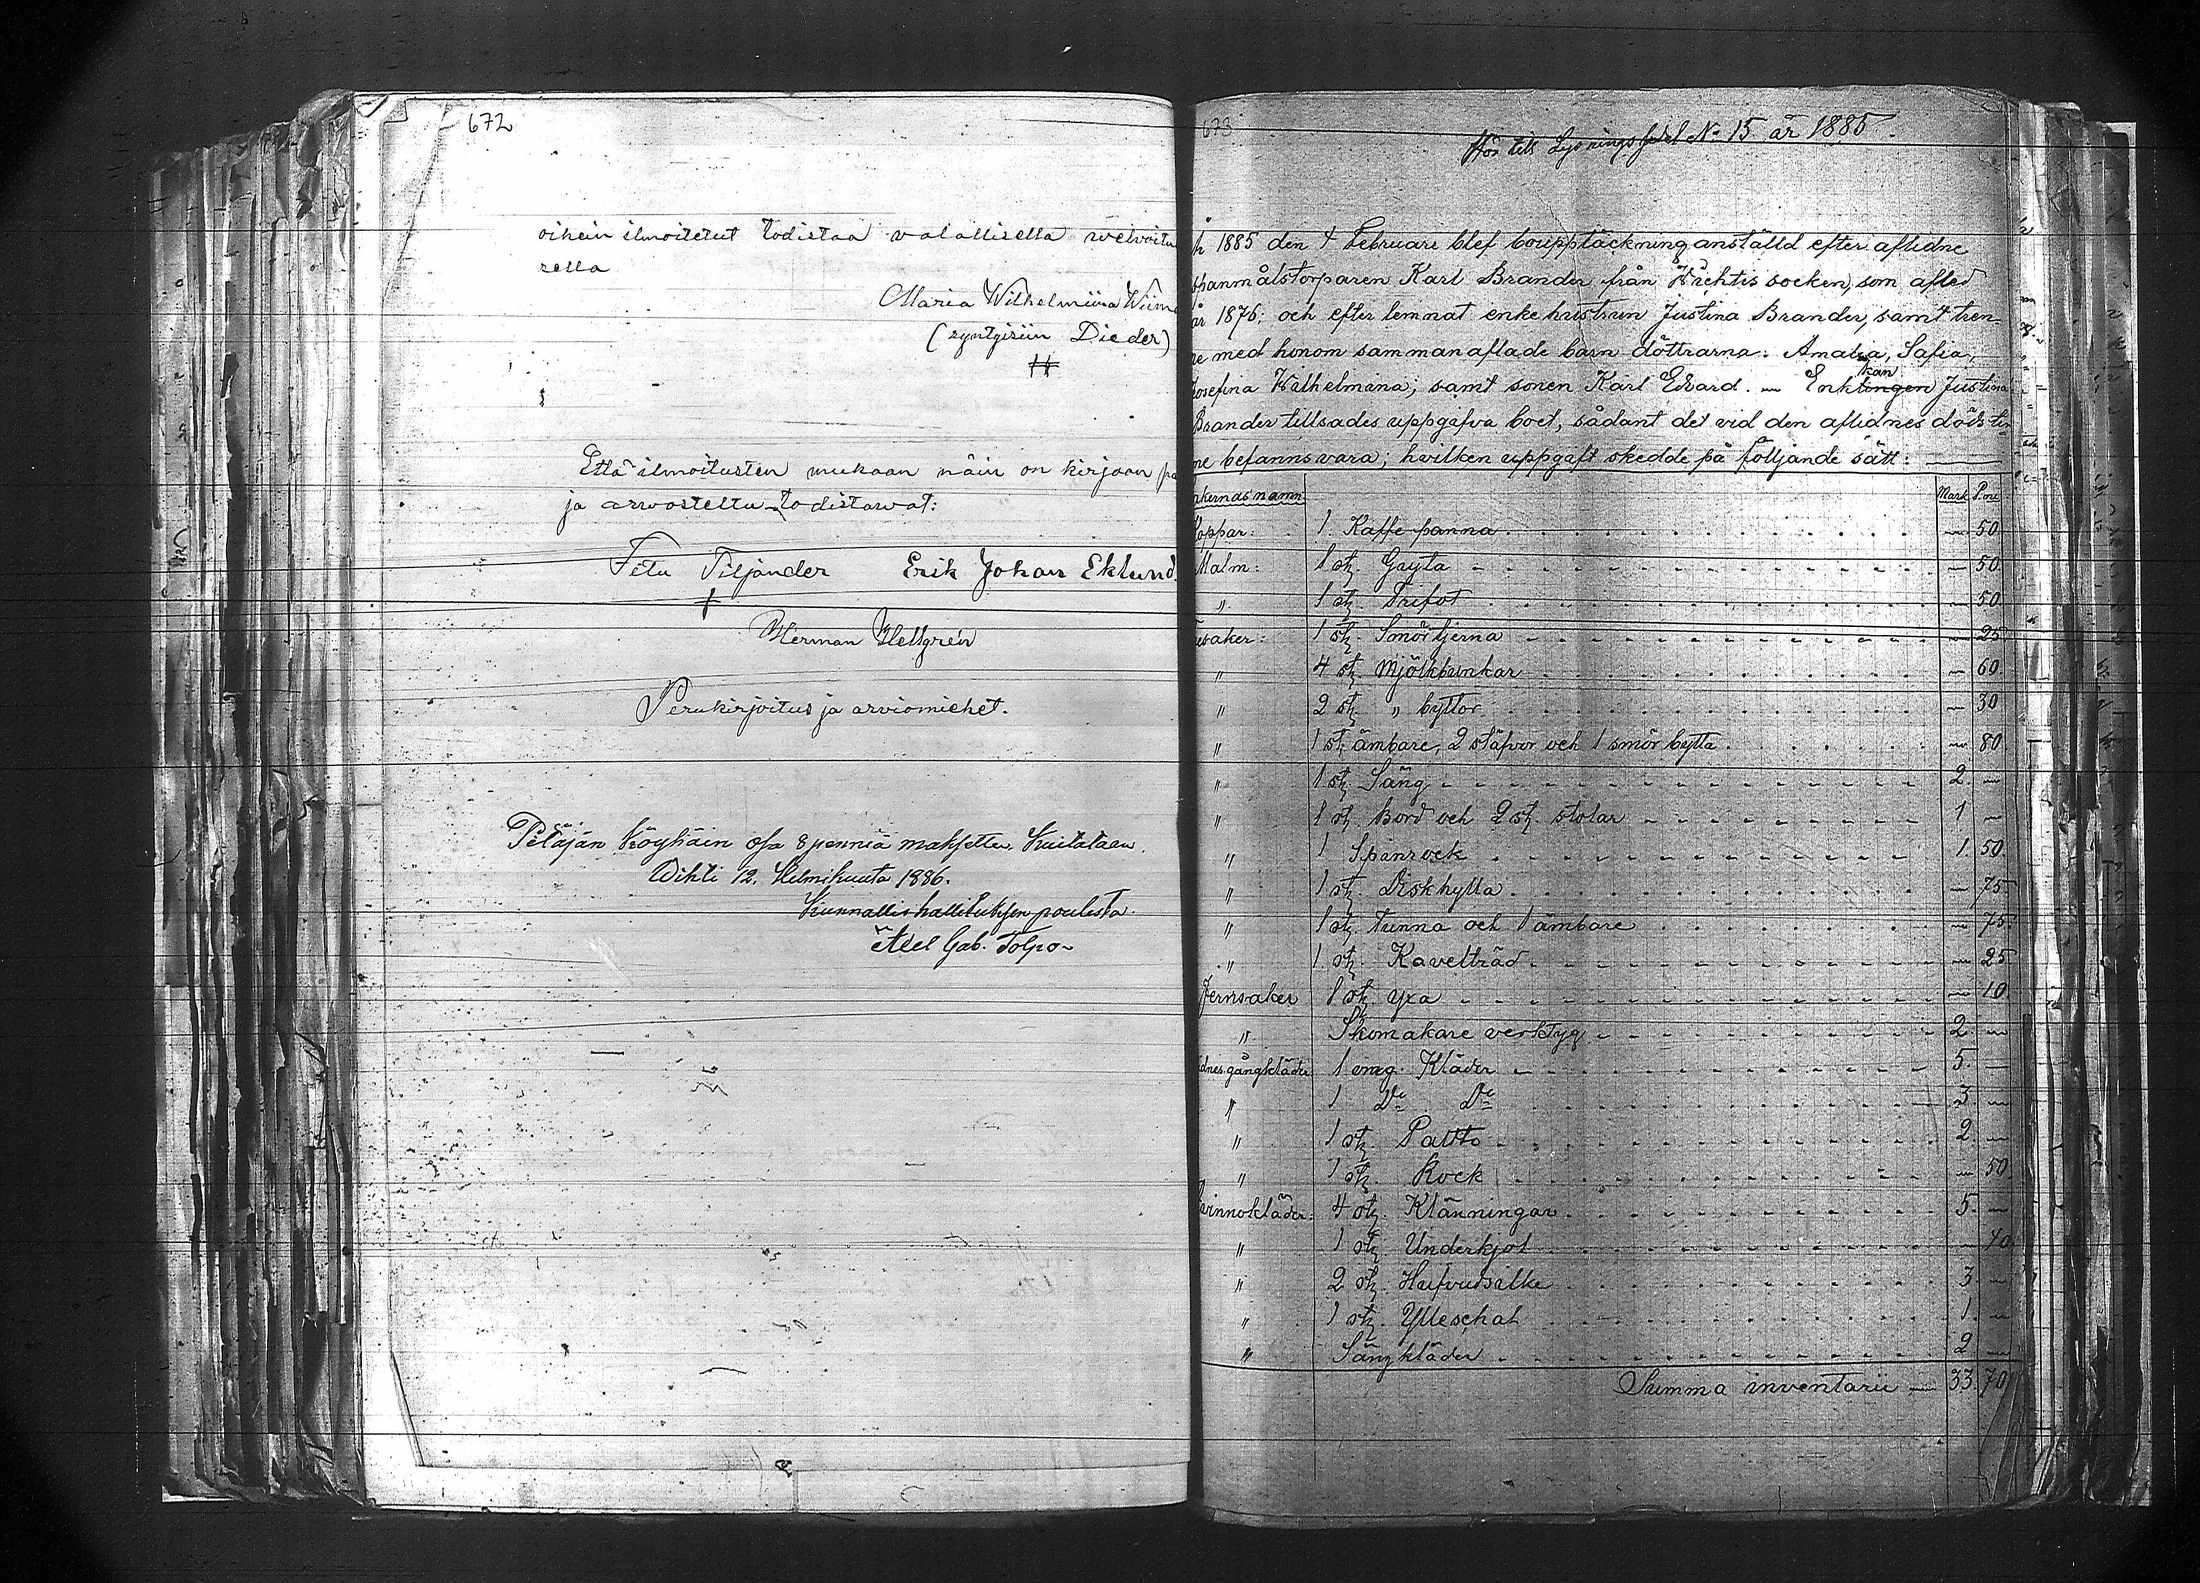 672
oikein ilmoitetut todistaa valallisella welvoitu
sella
Maria Wilhelmiina Wiim
(syntyisiin Dieder)
Että ilmoitusten mukaan näin on kirjaan pa
ja arwosteltu todistavat:
Feliu Tiljander Erik Johan Eklund
Herman Hellgrén
Perukirjoitus ja arviomiehet.
Pitäjän köyhäin osa 8 penniä maksettu. Kuitataan.
Wihti 12. Helmikuuta 1886.
Kunnallishallituksen puolesta
Axel Gab. Tolpo
673
Hör till Lysningsfardel No 15 år 1885.
r 1885 den 4 Februari blef bouppteckning anställd efter aflidne
spanmålstorparen Karl Brander från Wichtis socken, som afled
år 1876; och efterlemnat enkehustrun Justina Brander, samt tren-
ne med honom sammanaflade barn döttrarna: Amalia, Safia,
Josefina Wilhelmina; samt sonen Karl Edvard. — Enklingen kan Justina
Brander tillsades uppgifva boet, sådant det vid den aflidnes döds tim
me befanns vara; hvilken uppgift skedde på följande sätt:
nkernas namn Mark P:ni
Koppar: 1 Kaffe panna — 50
Malm: 1 st. Gryta — 50
" 1 st. Trifot — 50
äsaker: 1 st. Smörtjerna — 25
" 4 st. Mjölkbunkar — 60
" 2 st. " byttor — 30
" 1 st. ämbare, 2 stäfvor och 1 smör bytta — 80
" 1 st. Säng 2 —
" 1 st. Bord och 2 st. stolar 1 —
" 1 Spånrock 1. 50
" 1 st. Diskhylla — 75
" 1 st. tunna och 1 ämbare — 75
" 1 st. Kavelträd — 25
Jernsaker 1 st. yxa — 10
" Skomakare verktyg 2 —
dnes gångkläder 1 omg. Kläder 5. —
" 1 Do Do 3 —
" 1 st. Paltto 2 —
" 1 st. Rock — 50
Qvinnokläder: 4 st. Klänningar 5. —
" 1 st. Underkjol — 40
" 2 st. Hufvudsilke 3 —
" 1 st. Ylleschal 1. —
" Sängkläder 2 —
Summa inventarii — 33. 70